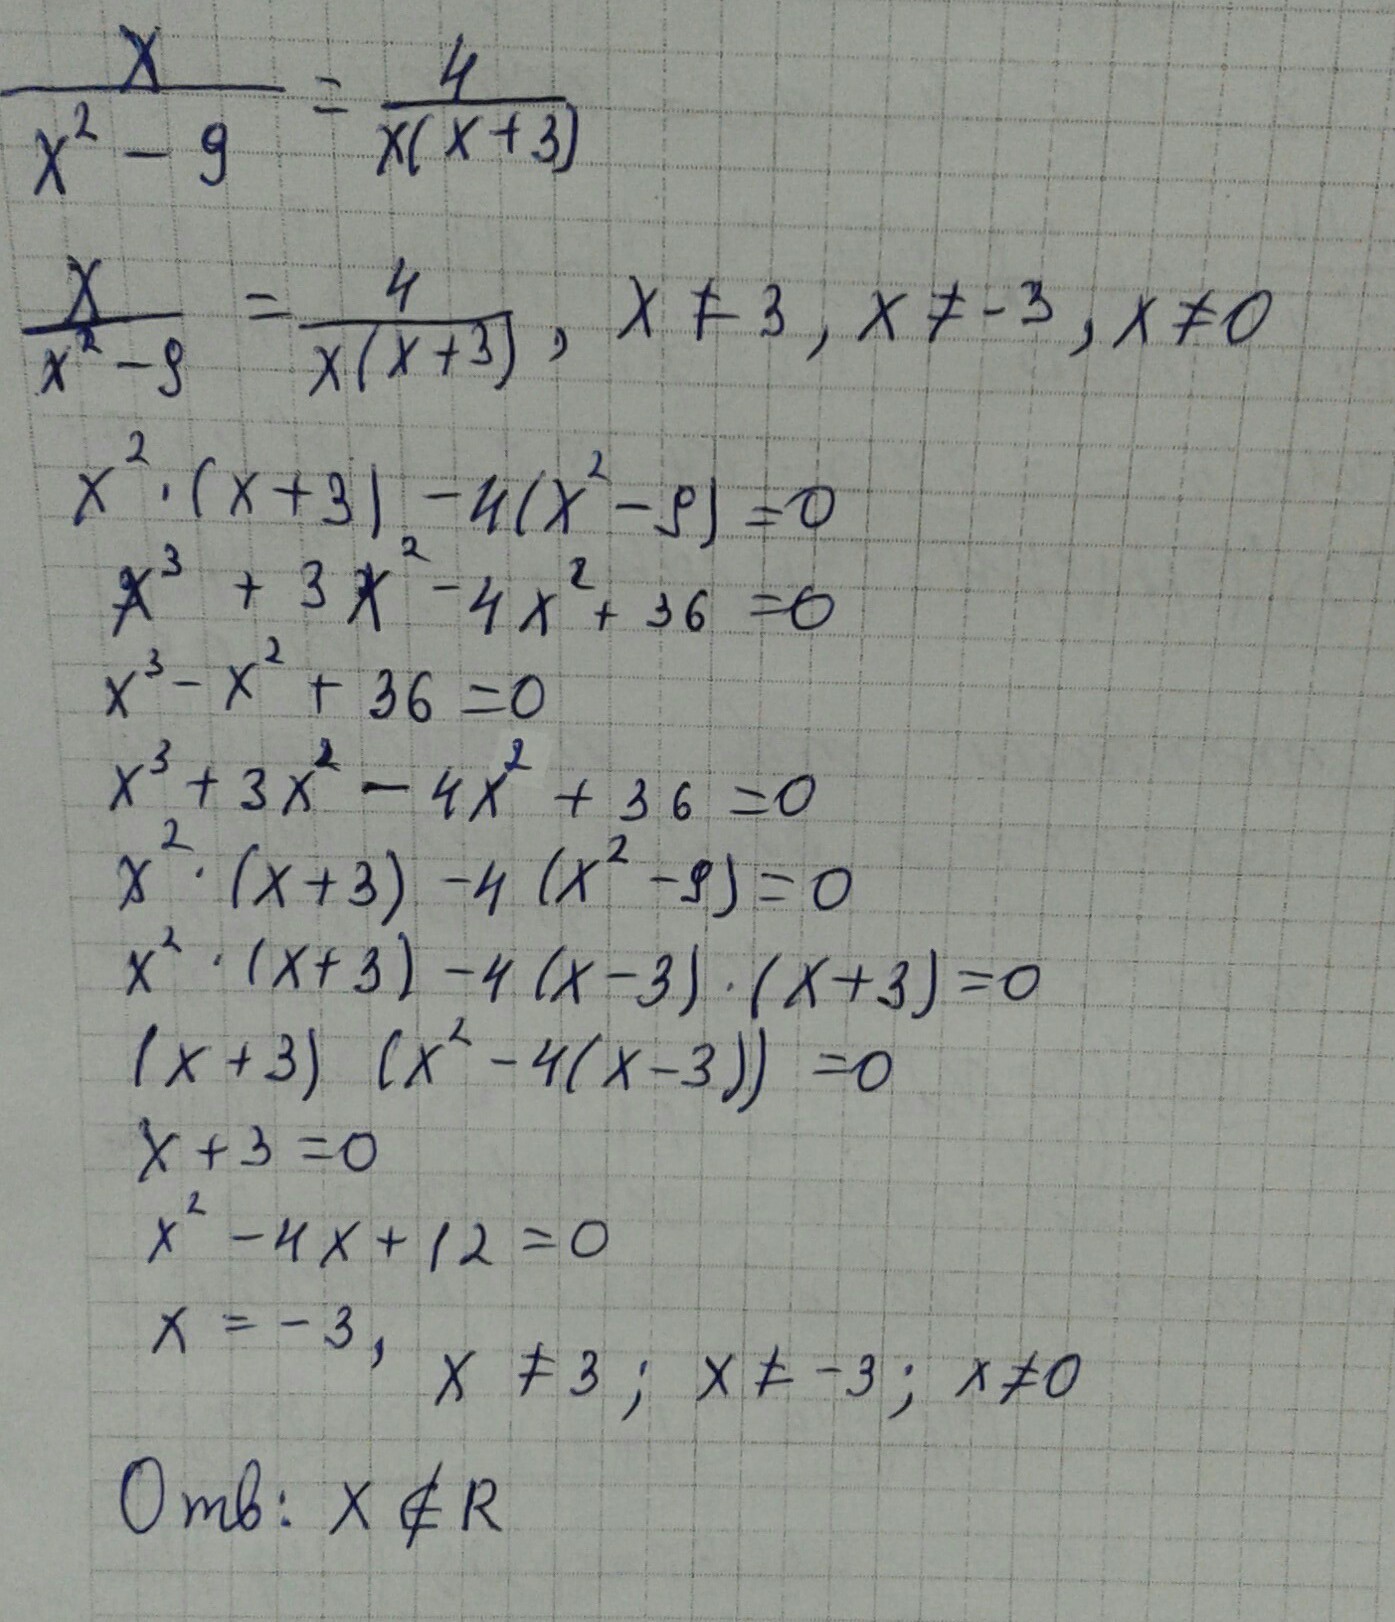 x/(x² - 9) = 4/(x(x+3))
x/(x² - 9) = 4/(x(x+3)), x ≠ 3, x ≠ -3, x ≠ 0
x² · (x+3) - 4(x² - 9) = 0
x³ + 3x² - 4x² + 36 = 0
x³ - x² + 36 = 0
x³ + 3x² - 4x² + 36 = 0
x² · (x+3) - 4(x² - 9) = 0
x² · (x+3) - 4(x-3) · (x+3) = 0
(x+3) (x² - 4(x-3)) = 0
x + 3 = 0
x² - 4x + 12 = 0
x = -3, x ≠ 3; x ≠ -3; x ≠ 0
Отв: x ∉ R